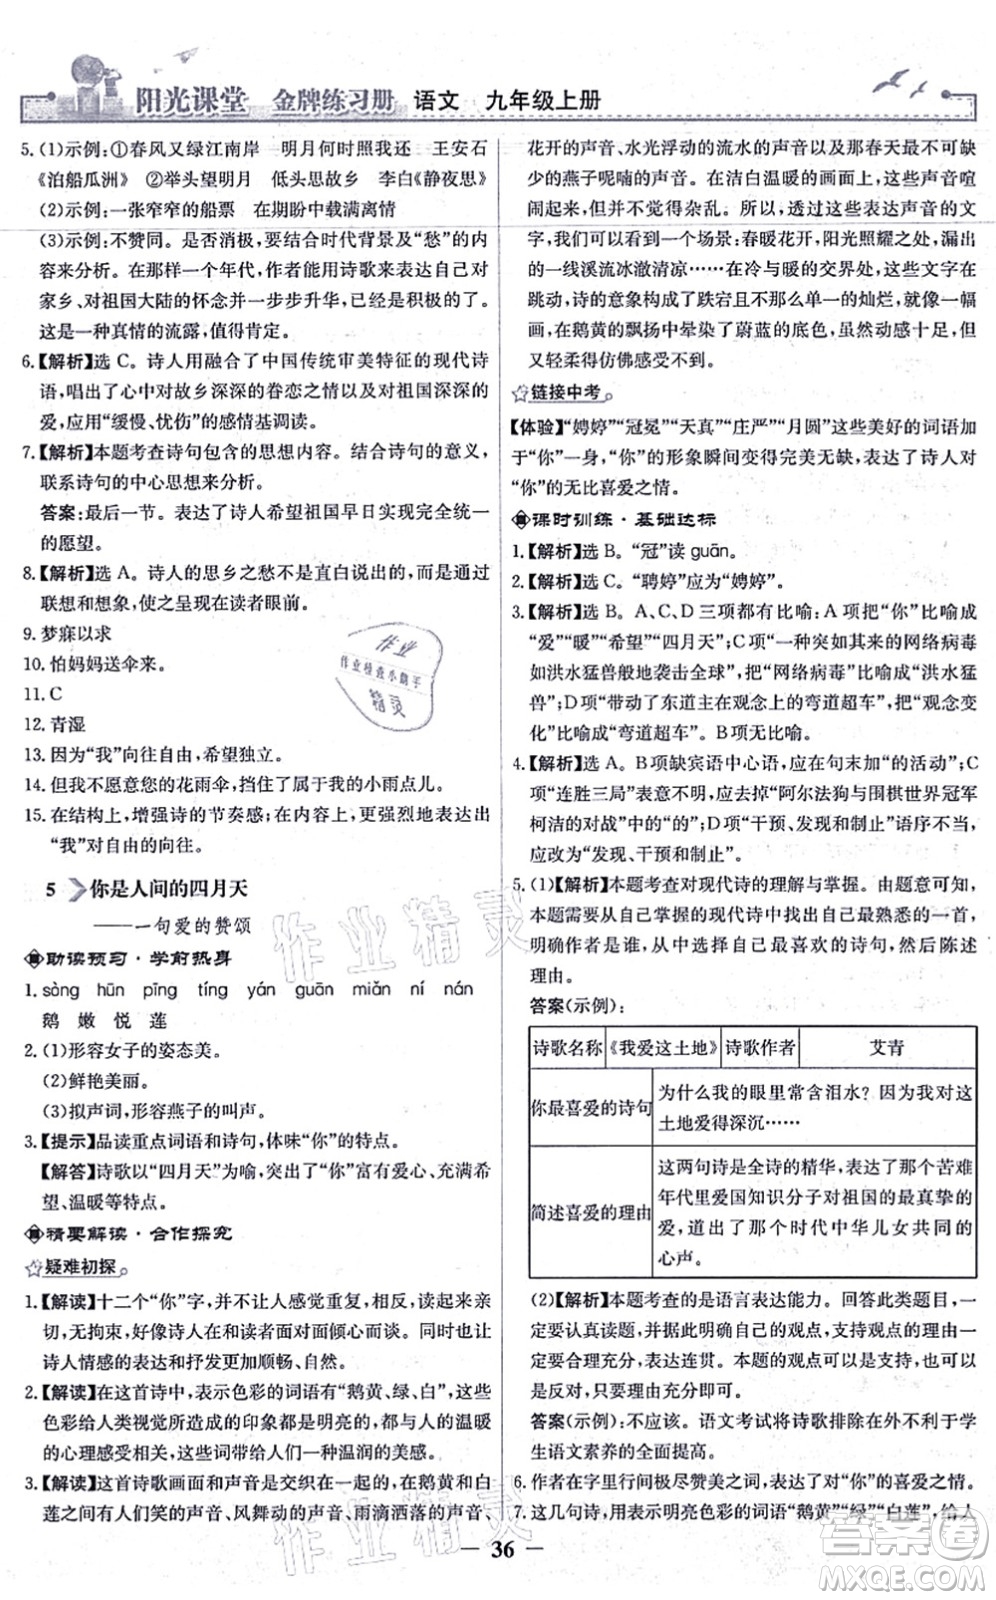 阳光课堂 金牌练习册 语文 九年级上册
5. (1)示例:①春风又绿江南岸 明月何时照我还 王安石
《泊船瓜洲》 ②举头望明月 低头思故乡 李白《静夜思》
(2)示例:一张窄窄的船票 在期盼中载满离情
(3)示例:不赞同。是否消极,要结合时代背景及“愁”的内
容来分析。在那样一个年代,作者能用诗歌来表达自己对
家乡、对祖国大陆的怀念并一步步升华,已经是积极的了。
这是一种真情的流露,值得肯定。
6.【解析】选 C。诗人用融合了中国传统审美特征的现代诗
语,唱出了心中对故乡深深的眷恋之情以及对祖国深深的
爱,应用“缓慢、忧伤”的感情基调读。
7.【解析】本题考查诗句包含的思想内容。结合诗句的含义,
联系诗句的中心思想来分析。
答案:最后一节。表达了诗人希望祖国早日实现完全统一
的愿望。
8.【解析】选 A。诗人的思乡之愁是抽象的,诗人通过合理的
联想和想象,使之呈现在读者眼前。
9. 梦寐以求
10. 怕妈妈送伞来。
11. C
12. 青湿
13. 因为“我”向往自由,希望独立。
14. 但我不愿意您的花雨伞,挡住了属于我的小雨点儿。
15. 在结构上,增强诗的节奏感;在内容上,反复强调,表达出
“我”对自由的向往。
5 你是人间的四月天
——一句爱的赞颂
助读预习·学前热身
1. sòng hūn pīng tíng yán guān miǎn ní nán
鹅 嫩 悦 莲
2. (1)形容女子的姿态美。
(2)鲜艳美丽。
(3)拟声词,形容燕子的叫声。
3.【提示】品读重点词语和诗句,体味“你”的特点。
【解答】诗歌以“四月天”为喻,突出了“你”富有爱心、充满希
望、温暖等特点。
精要解读·合作探究
疑难初探
1.【解读】十二个“你”字,并不让人感觉重复,相反,读起来亲
切,无拘束,好像诗人在和读者面对面倾心而谈。同时也让
诗人情感的表达和抒发更加流畅自然。
2.【解读】在这首诗中,表示色彩的词语有“鹅黄、绿、白”,这些
色彩给人类视觉所造成的印象都是明亮的,给人的温暖
的心理感受相契合,这些词句带给人们一种温润的美感。
3.【解读】这首诗歌画面和声音是结合在一起的,在鹅黄和白
莲之间有人们笑的声音、风舞动的声音、雨滴洒落的声音、
花开的声音、水光浮动的流水的声音以及那春天最惹人爱
的燕子呢喃的声音。在洁白温暖的画面上,这些声音喧
闹起来,但并不觉得杂乱。所以,透过这些表达声音的文
字,我们可以看到一个场景:春暖花开,阳光照耀之处,漏出
的一线溪流冰澈清凉……在冷与暖的交界处,这些文字在
跳动,诗的意象构成了跌宕而不是单一的灿烂,就像一幅
画,在鹅黄的飘扬中晕染了蔚蓝的底色,虽然动感十足,但
又轻柔得仿佛感受不到。
链接中考
【体验】“娉婷”“冠冕”“天真”“庄严”“月圆”这些美好的词语加
于“你”一身,“你”的形象瞬间变得完美无缺,表达了诗人对
“你”的无比喜爱之情。
课时训练·基础达标
1.【解析】选 B。“冠”读 guān。
2.【解析】选 C。“聘婷”应为“娉婷”。
3.【解析】选 B。A、C、D 三项都有比喻:A 项把“你”比喻成
“爱”“暖”“希望”“四月天”;C 项“一种突如其来的网络病毒
如洪水猛兽般地袭击全球”,把“网络病毒”比喻成“洪水猛
兽”;D 项“带动了东道主在观念上的弯道超车”,把“观念变
化”比喻成“弯道超车”。而 B 项没有使用比喻。
4.【解析】选 A。B 项缺宾语中心语,应在句末加“的活动”;C
项“连胜三局”表意不明,应去掉“阿尔法狗与围棋世界冠军
柯洁的对战”中的“的”;D 项“干预、发现和制止”语序不当,
应改为“发现、干预和制止”。
5. (1)【解析】本题考查对现代诗的理解与掌握。题意可知,
本题需要从自己掌握的现代诗中找出自己最熟悉的一首,
明确作者是谁,从中选择自己最喜欢的诗句,然后陈述
理由。
答案(示例):
诗歌名称 《我爱这土地》 诗歌作者 艾青
你最喜爱的诗句 为什么我的眼里常含泪水? 因为我对这
土地爱得深沉……
简述喜爱的理由 这两句诗是全诗的精华,表达了那个苦难
年代里爱国知识分子对祖国的最真挚的
爱,道出了那个时代中华儿女共同的
心声。
(2)【解析】本题考查的是语言表达能力。回答此类题目,一
定要认真读题,并据此明确自己的观点,支持观点的理由一
定要合理充分,表达连贯。本题的观点可以是支持,也可以
是反对,理由充分即可。
答案(示例):不应该。语文考试将诗歌排除在外不利于学
生语文素养的全面提高。
6. 作者在字里行间极尽赞美之词,表达了对“你”的喜爱之情。
7. 这几句诗,用表示明亮色彩的词语“鹅黄”“绿”“白莲”,给人
— 36 —
作业
作业检查小助手
精灵
作业精灵
作业精灵
答案圈
MXQE.COM